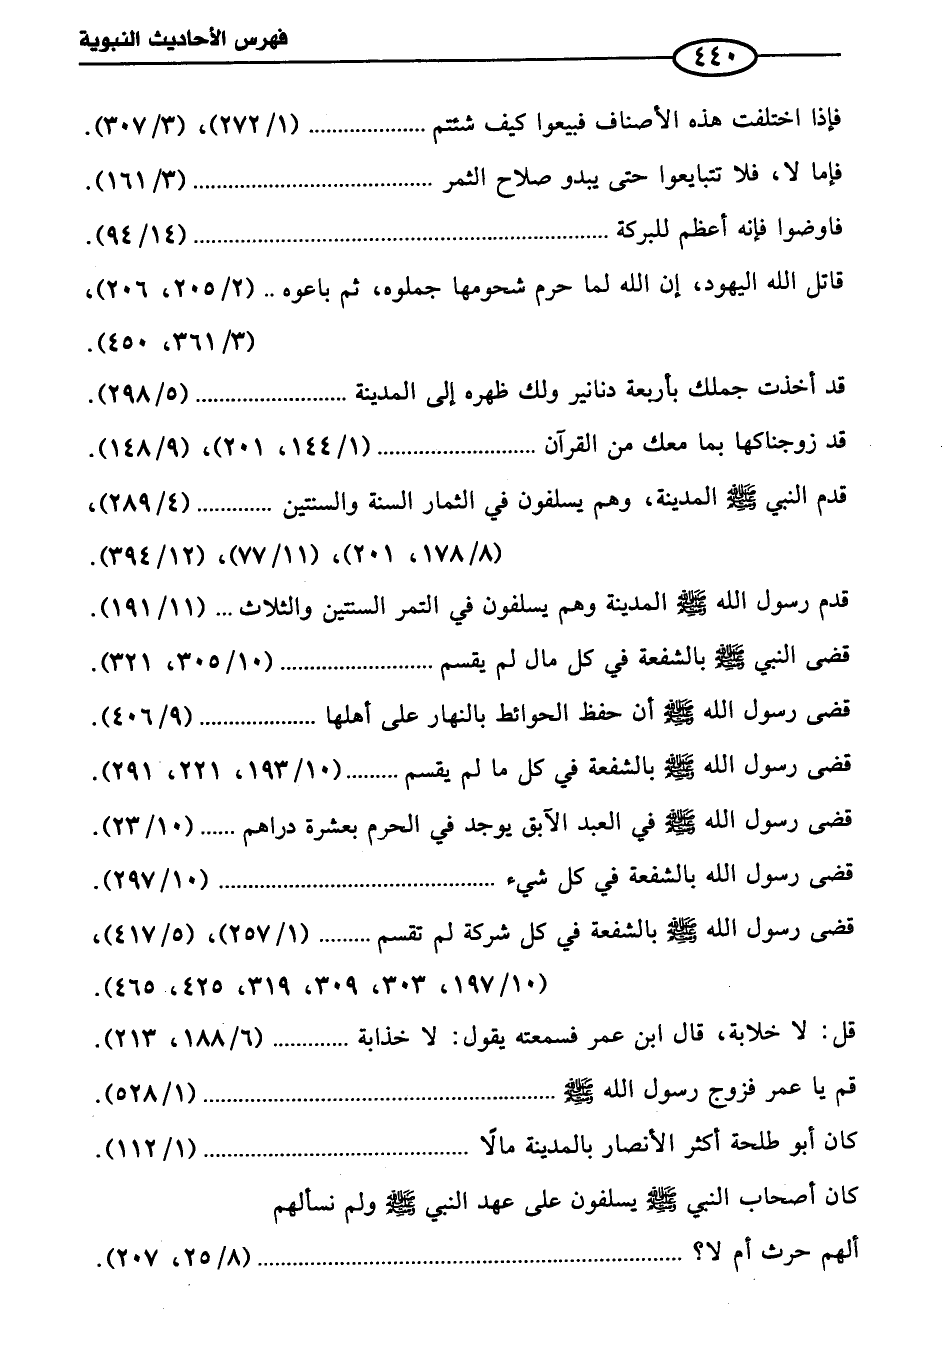 فهرس الأحاديث النبوية
٤٤٠
فإذا اختلفت هذه الأصناف فبيعوا كيف شئتم .................... (١/ ٢٧٢)، (٣/ ٣٠٧).
فإما لا، فلا تتبايعوا حتى يبدو صلاح الثمر ......................................... (٣/ ١٦١).
فاوضوا فإنه أعظم للبركة ....................................................................... (١٤/ ٩٤).
قاتل الله اليهود، إن الله لما حرم شحومها جملوه، ثم باعوه .. (٢/ ٢٠٥، ٢٠٦)،
(٣/ ٣٦١، ٤٥٠).
قد أخذت جملك بأربعة دنانير ولك ظهره إلى المدينة .......................... (٥/ ٢٩٨).
قد زوجناكها بما معك من القرآن ........................... (١/ ١٤٤، ٢٠١)، (٩/ ١٤٨).
قدم النبي ﷺ المدينة، وهم يسلفون في الثمار السنة والسنتين ............. (٤/ ٢٨٩)،
(٨/ ١٧٨، ٢٠١)، (١١/ ٧٧)، (١٢/ ٣٩٤).
قدم رسول الله ﷺ المدينة وهم يسلفون في التمر السنتين والثلاث ... (١١/ ١٩١).
قضى النبي ﷺ بالشفعة في كل مال لم يقسم .......................... (١٠/ ٣٠٥، ٣٢١).
قضى رسول الله ﷺ أن حفظ الحوائط بالنهار على أهلها .................... (٩/ ٤٠٦).
قضى رسول الله ﷺ بالشفعة في كل ما لم يقسم ......... (١٠/ ١٩٣، ٢٢١، ٢٩١).
قضى رسول الله ﷺ في العبد الآبق يوجد في الحرم بعشرة دراهم ...... (١٠/ ٢٣).
قضى رسول الله بالشفعة في كل شيء ............................................... (١٠/ ٢٩٧).
قضى رسول الله ﷺ بالشفعة في كل شركة لم تقسم ......... (١/ ٢٥٧)، (٥/ ٤١٧)،
(١٠/ ١٩٧، ٣٠٣، ٣٠٩، ٣١٩، ٤٢٥، ٤٦٥).
قل: لا خلابة، قال ابن عمر فسمعته يقول: لا خذابة ............. (٦/ ١٨٨، ٢١٣).
قم يا عمر فزوج رسول الله ﷺ ............................................................ (١/ ٥٢٨).
كان أبو طلحة أكثر الأنصار بالمدينة مالًا ............................................. (١/ ١١٢).
كان أصحاب النبي ﷺ يسلفون على عهد النبي ﷺ ولم نسألهم
ألهم حرث أم لا؟ ......................................................................... (٨/ ٢٥، ٢٠٧).